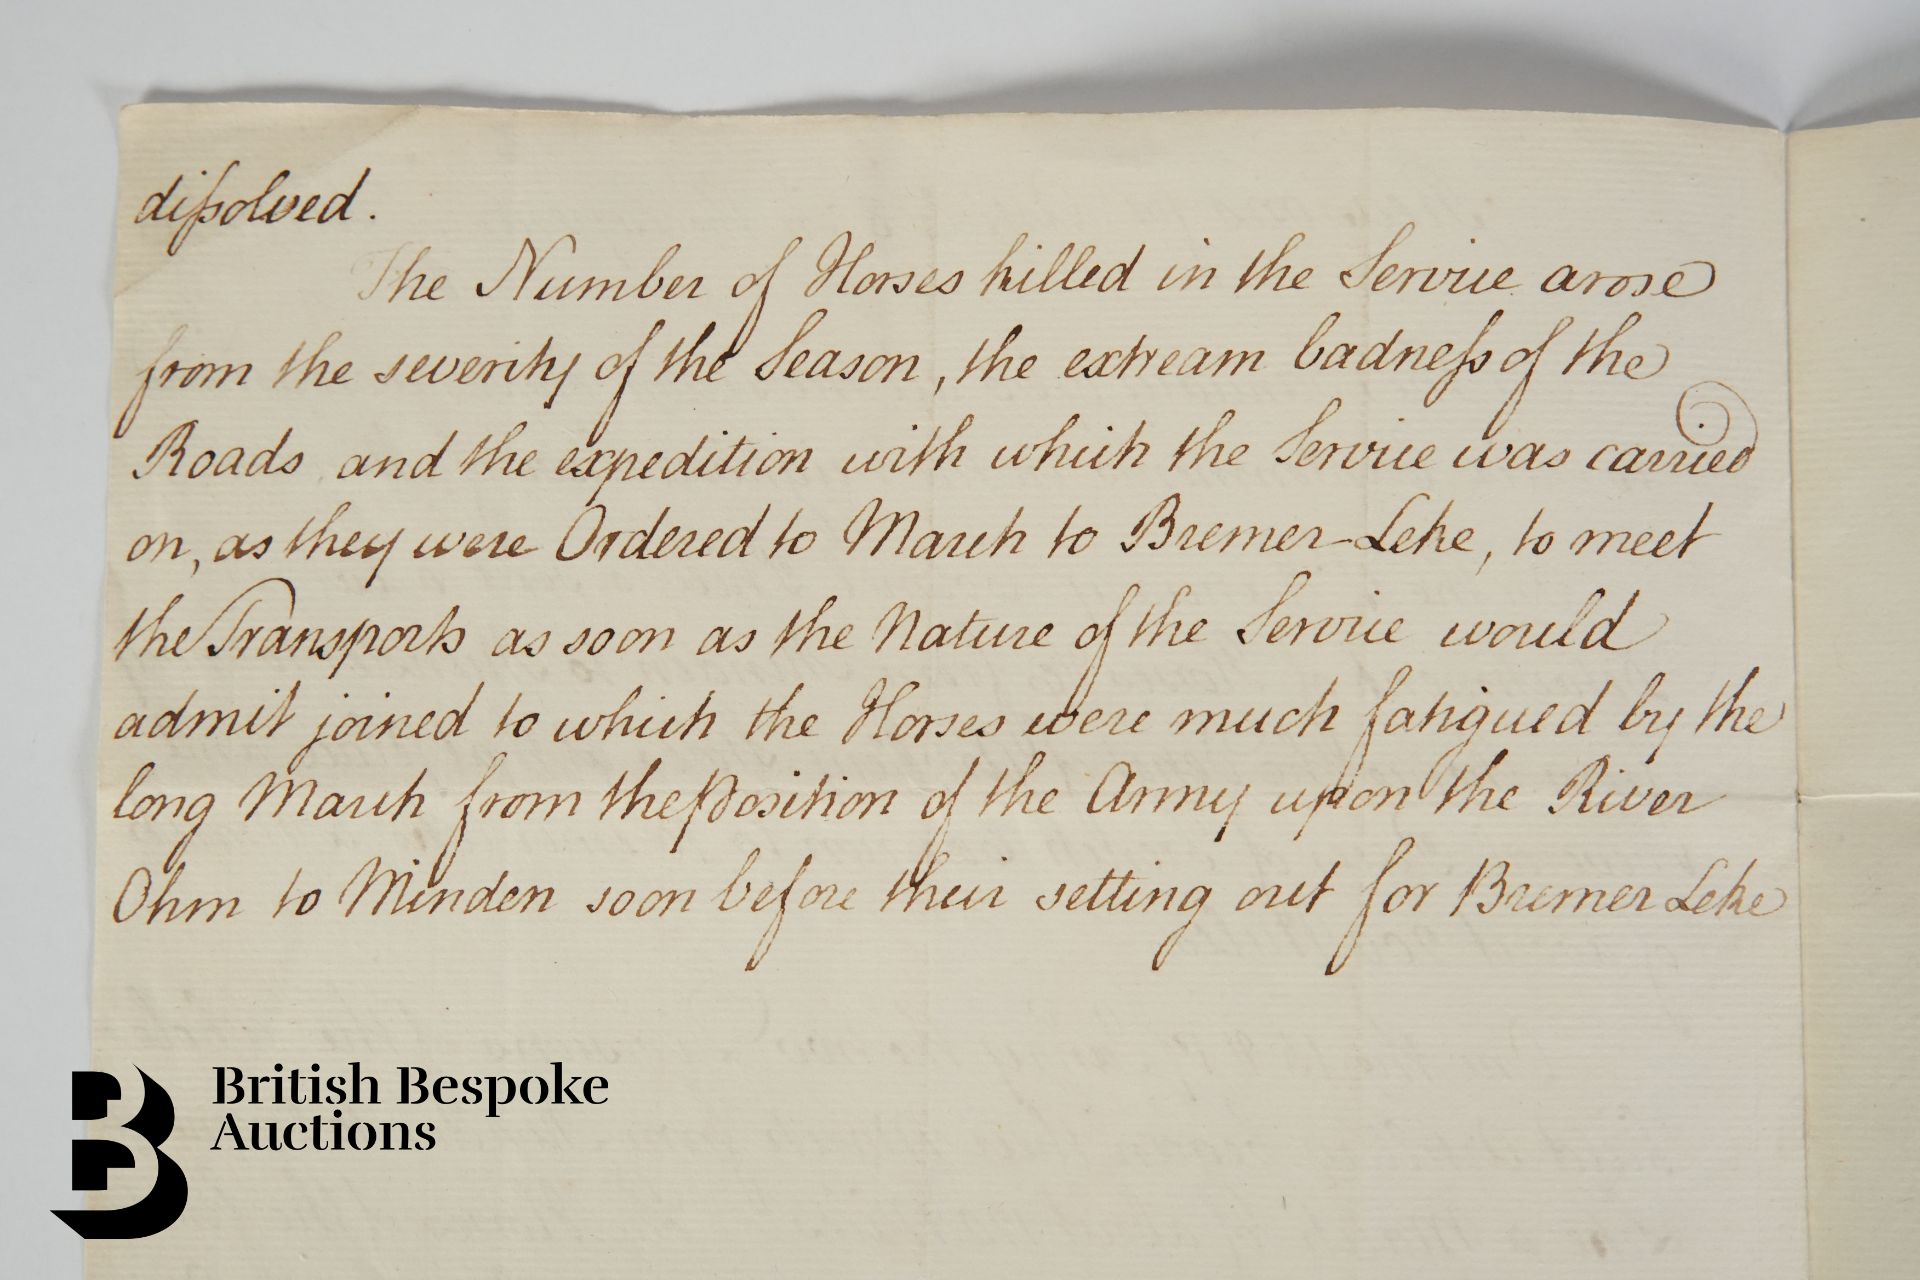 diſsolved.
The Number of Horses killed in the Service arose
from the severity of the Season, the extream badneſs of the
Roads and the expedition with which the Service was carried
on, as they were Ordered to March to Bremer-Leke, to meet
the Transports as soon as the Nature of the Service would
admit joined to which the Horses were much fatigued by the
long March from the Position of the Army upon the River
Ohm to Minden soon before their setting out for Bremer Leke
British Bespoke
Auctions